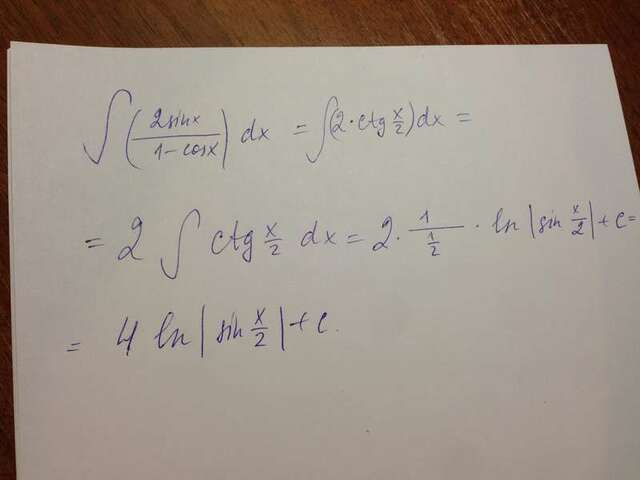 ∫(2sinx/1-cosx) dx = ∫(2·ctg x/2)dx =
= 2 ∫ ctg x/2 dx = 2· 1/(1/2) · ln|sin x/2| + c =
= 4 ln|sin x/2| + c.